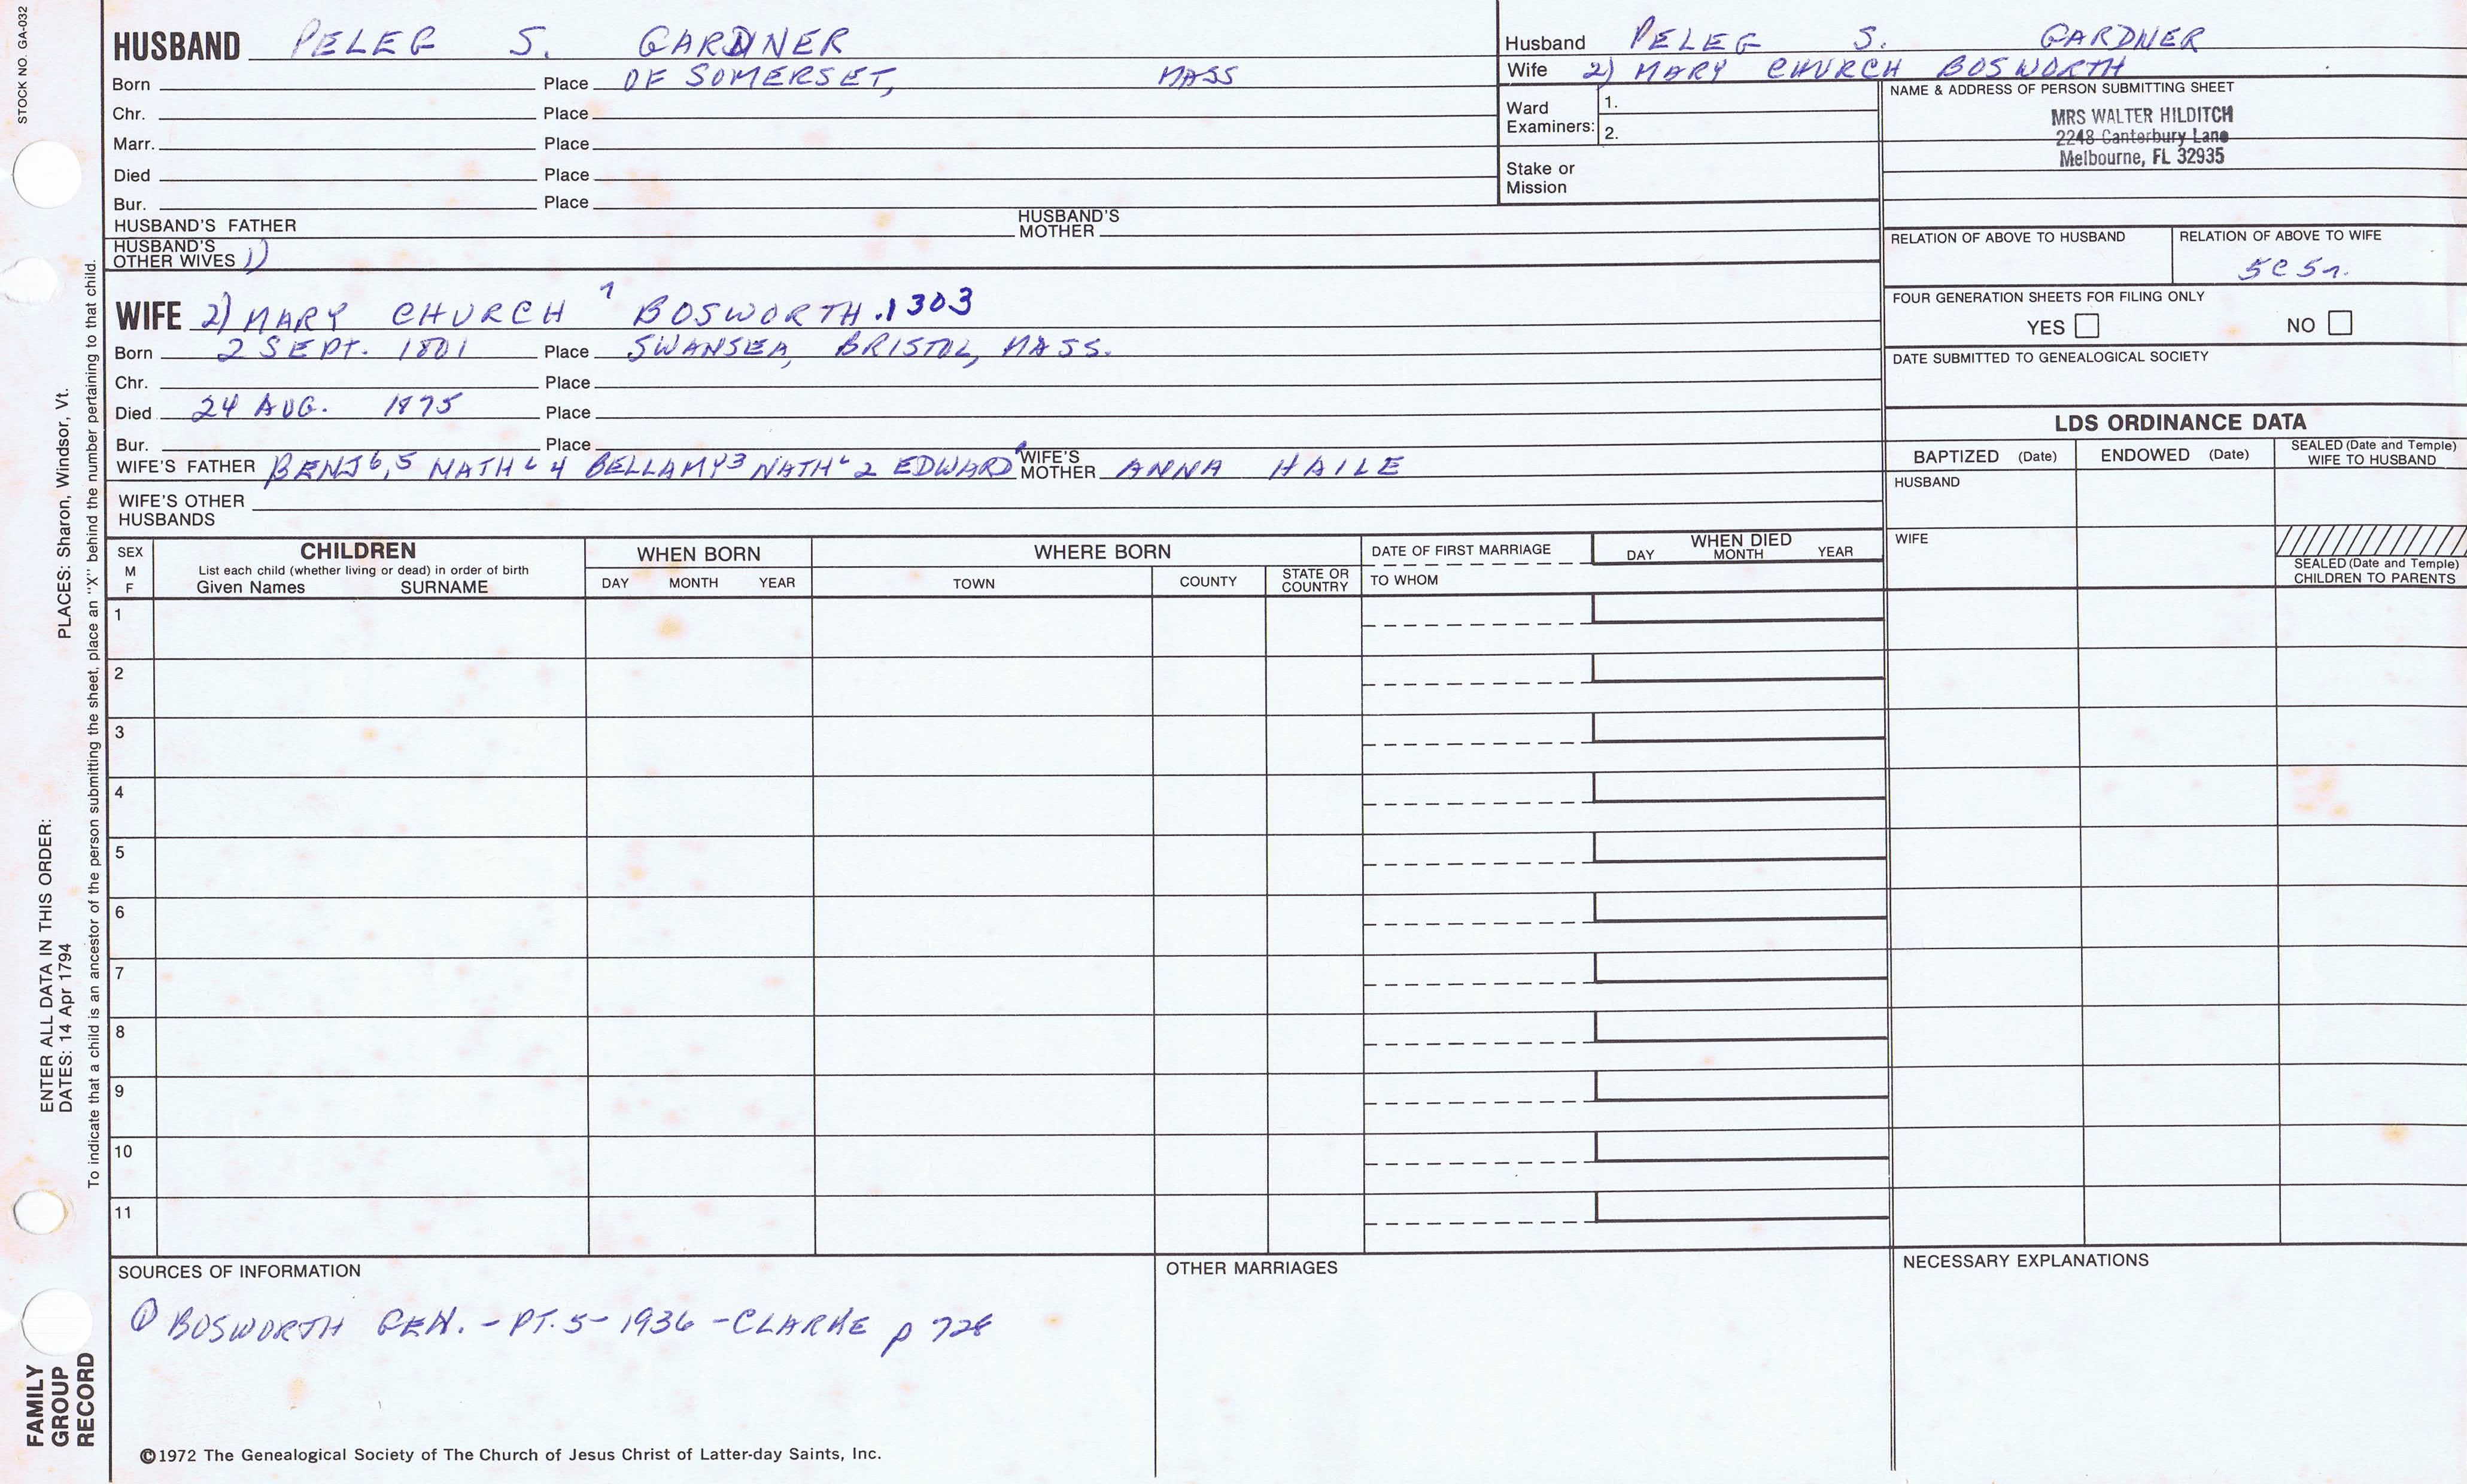 STOCK NO. GA-032
HUSBAND PELEG S. GARDNER
Born Place OF SOMERSET, MASS
Chr. Place
Marr. Place
Died Place
Bur. Place
HUSBAND'S FATHER HUSBAND'S MOTHER
HUSBAND'S OTHER WIVES 1)
Husband PELEG S. GARDNER
Wife 2) MARY CHURCH BOSWORTH
Ward Examiners: 1.
2.
Stake or Mission
NAME & ADDRESS OF PERSON SUBMITTING SHEET
MRS WALTER HILDITCH
2248 Canterbury Lane
Melbourne, FL 32935
RELATION OF ABOVE TO HUSBAND RELATION OF ABOVE TO WIFE
5C5r.
FOUR GENERATION SHEETS FOR FILING ONLY
YES NO
DATE SUBMITTED TO GENEALOGICAL SOCIETY
WIFE 2) MARY CHURCH 7 BOSWORTH .1303
Born 2 SEPT. 1801 Place SWANSEA, BRISTOL, MASS.
Chr. Place
Died 24 AUG. 1875 Place
Bur. Place
WIFE'S FATHER BENJ 6, 5 NATHL 4 BELLAMY 3 NATHL 2 EDWARD 1 WIFE'S MOTHER ANNA HAILE
WIFE'S OTHER HUSBANDS
LDS ORDINANCE DATA
BAPTIZED (Date) ENDOWED (Date) SEALED (Date and Temple) WIFE TO HUSBAND
HUSBAND
WIFE
SEALED (Date and Temple) CHILDREN TO PARENTS
SEX M F
CHILDREN
List each child (whether living or dead) in order of birth
Given Names SURNAME
WHEN BORN
DAY MONTH YEAR
WHERE BORN
TOWN COUNTY STATE OR COUNTRY
DATE OF FIRST MARRIAGE
TO WHOM
WHEN DIED
DAY MONTH YEAR
1
2
3
4
5
6
7
8
9
10
11
SOURCES OF INFORMATION
① BOSWORTH GEN. - PT. 5 - 1936 - CLARKE p 728
OTHER MARRIAGES
NECESSARY EXPLANATIONS
©1972 The Genealogical Society of The Church of Jesus Christ of Latter-day Saints, Inc.
FAMILY GROUP RECORD
ENTER ALL DATA IN THIS ORDER:
DATES: 14 Apr 1794 PLACES: Sharon, Windsor, Vt.
To indicate that a child is an ancestor of the person submitting the sheet, place an "X" behind the number pertaining to that child.